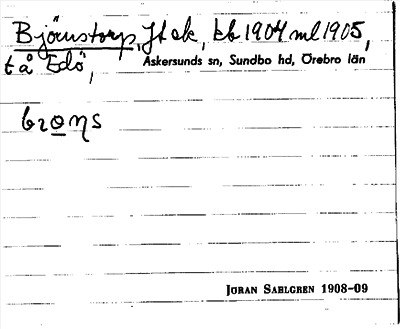 Björnstorp, Jt ek, kb 1904 ml 1905,
t å Edö, Askersunds sn, Sundbo hd, Örebro län
Jöran Sahlgren 1908-09